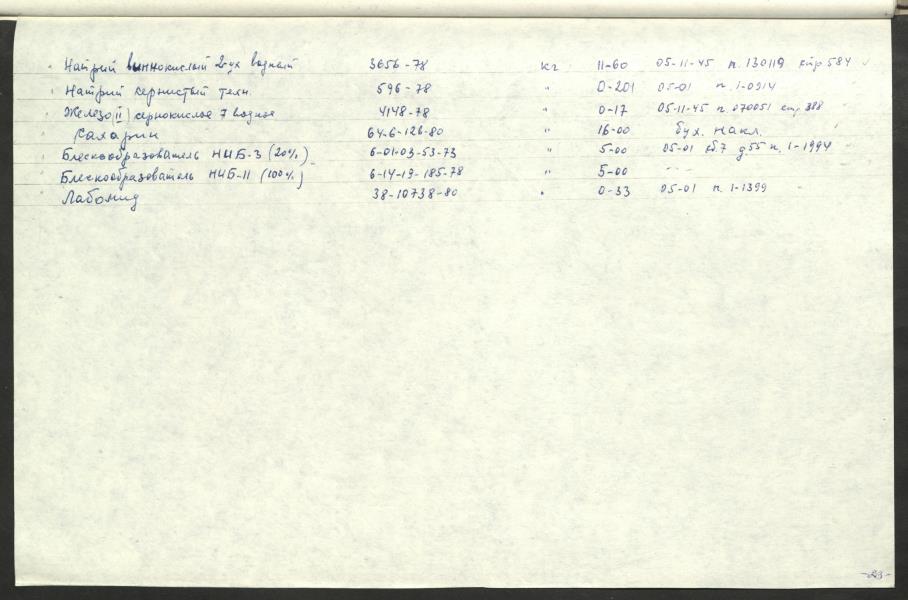 Натрий виннокислый 2-ух водный 3656-78 кг 11-60 05-11-45 п. 130119 стр 584
Натрий сернистый техн. 596-78 " 0-201 05-01 п. 1-0914
Железо (II) сернокислое 7 водное 4148-78 " 0-17 05-11-45 п 070051 стр 388
Сахарин 64-6-126-80 " 16-00 бух. накл.
Блескообразователь НИБ-3 (20%) 6-01-03-53-73 " 5-00 05-01 д55 п. 1-1994
Блескообразователь НИБ-11 (100%) 6-14-19-185-78 " 5-00 - - -
Лабомид 38-10738-80 " 0-33 05-01 п. 1-1399